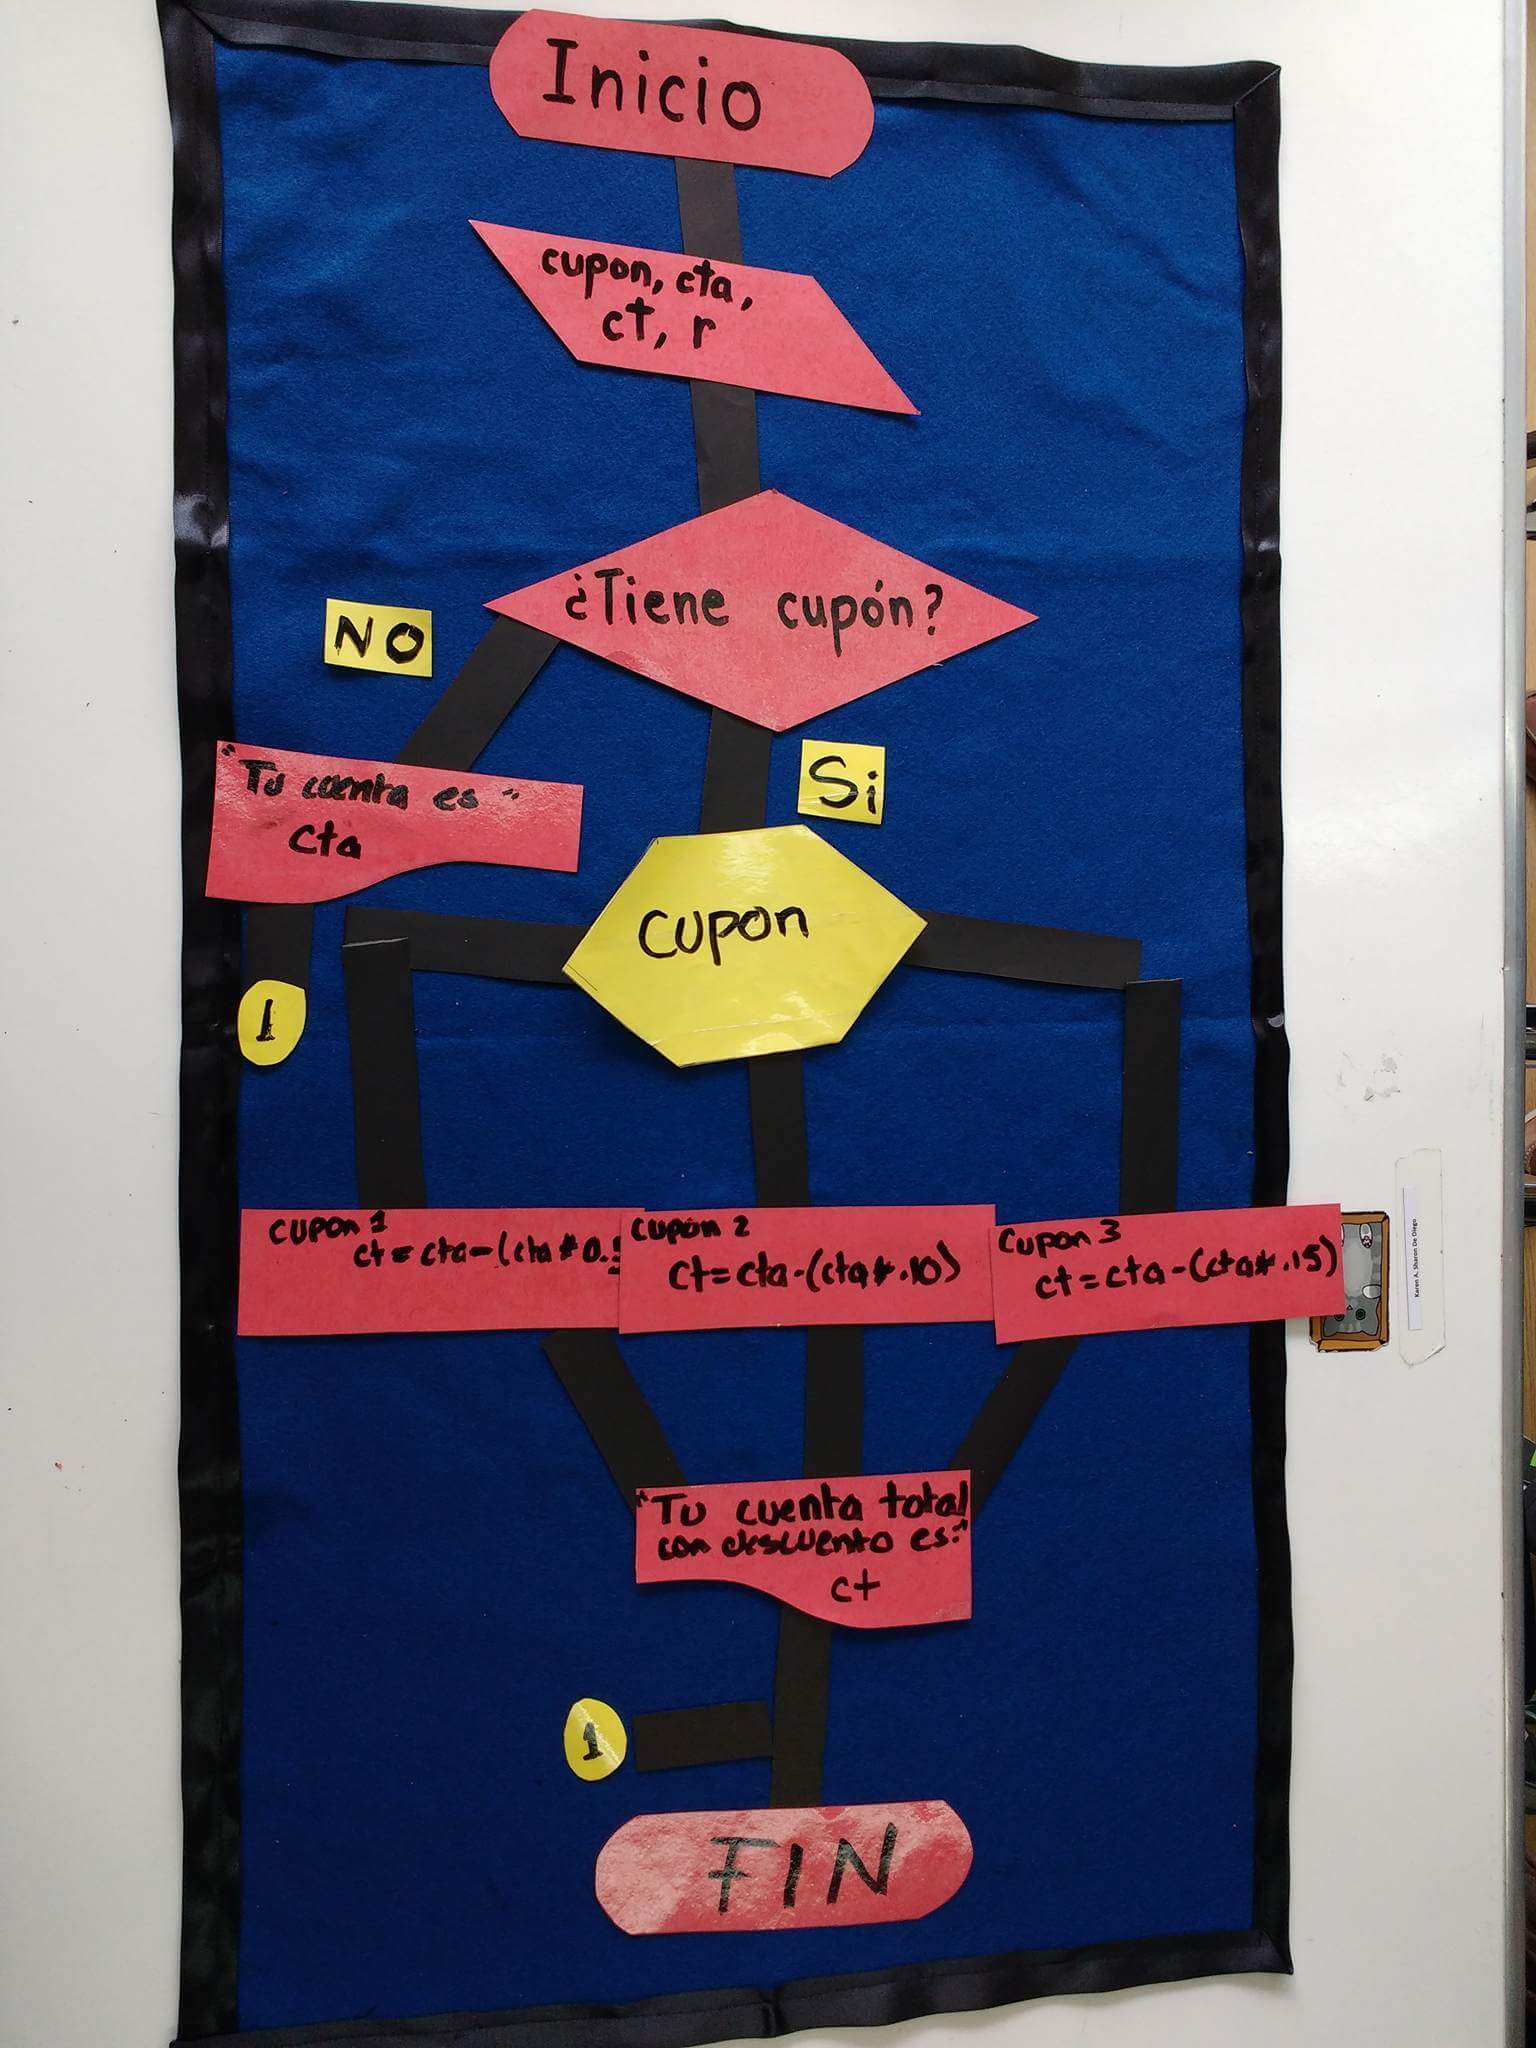 Inicio
cupon, cta,
ct, r
¿Tiene cupón?
NO
Si
"Tu cuenta es"
cta
cupon
1
cupon 1
ct = cta - (cta * 0.
cupon 2
ct = cta - (cta * .10)
cupon 3
ct = cta - (cta * .15)
"Tu cuenta total
con descuento es:"
ct
1
FIN
Karen A. Sharon De Diego